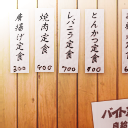 とんかつ定食
900
レバニラ定食
700
焼肉定食
900
唐揚げ定食
800
バイト